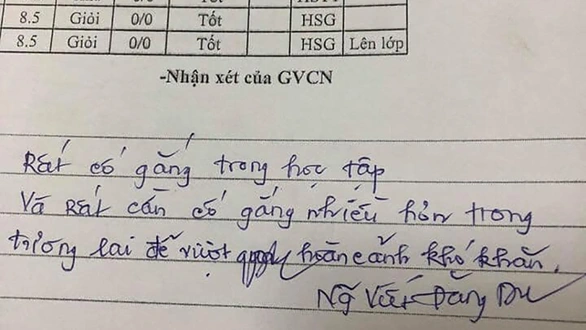 8.5 Giỏi 0/0 Tốt HSG
8.5 Giỏi 0/0 Tốt HSG Lên lớp
-Nhận xét của GVCN
Rất cố gắng trong học tập
Và Rất cần cố gắng nhiều hơn trong
tương lai để vượt hoàn cảnh khó khăn.
Ng Viết Đăng Du